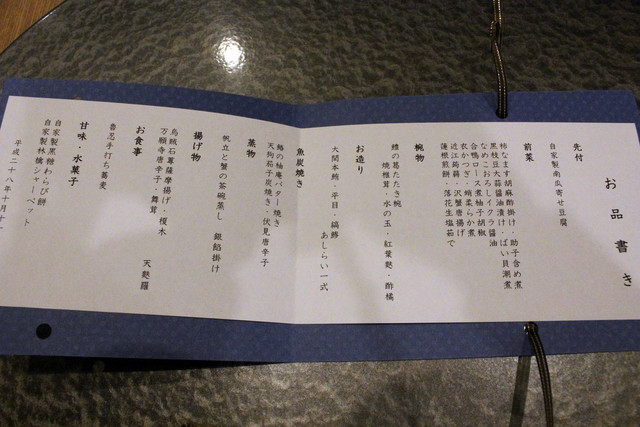 お品書き
先付
自家製南瓜寄せ豆腐
前菜
柿なます胡麻酢掛け・助子含め煮
黒枝豆大蒜醤油漬け・ばい貝潮煮
なめこおろしイクラ醤油
合鴨ロース煮柚子胡椒
衣かつぎ・蛸柔らか煮
近江蒟蒻・沢蟹唐揚げ
蓮根煎餅・落花生塩茹で
椀物
鱧の葛たたき椀
焼椎茸・水の玉・紅葉麩・酢橘
お造り
大間本鮪・平目・縞鯵
あしらい一式
魚炭焼き
鮋の柚庵バター焼き
天狗茄子炭焼き・伏見唐辛子
蒸物
帆立と蟹の茶碗蒸し 銀餡掛け
揚げ物
烏賊石蓴薩摩揚げ・榎木
万願寺唐辛子・舞茸 天麩羅
お食事
魯思手打ち蕎麦
甘味・水菓子
自家製黒糖わらび餅
自家製林檎シャーベット
平成二十八年十月十